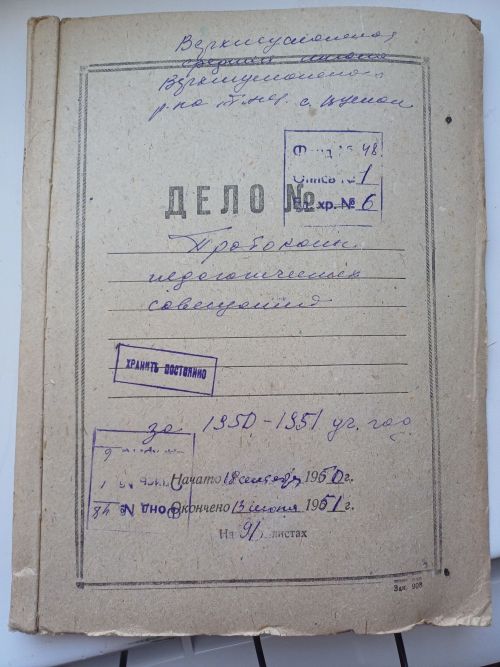 Верхнеуслонская
средняя школа
Верхнеуслонского
р-на
Фонд № 48
Опись № 1
Ед. хр. № 6
ДЕЛО №
Протоколы
педагогических
совещаний
ХРАНИТЬ ПОСТОЯННО
за 1950-1951 уч. год
Начато 18 сентября 1950г.
Окончено 13 июня 1951г.
На 91 листах
Фонд № 48
Опись № 1
Зак. 908